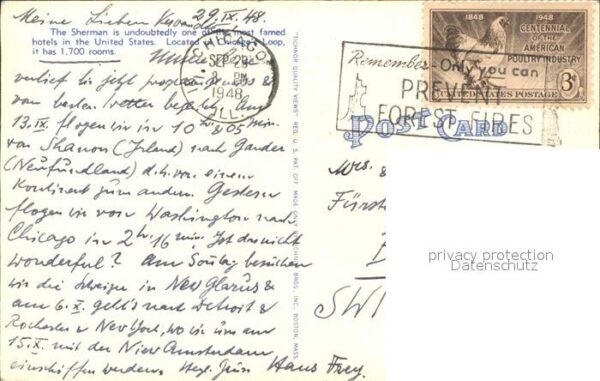 29.IX.48.
Meine Lieben
The Sherman is undoubtedly one of the most famed
hotels in the United States. Located in Chicago's Loop,
it has 1,700 rooms.
verlief bis jetzt programmgemäss &
vom besten Wetter
13.IX. flogen wir in 10 Std 05 Min.
von Shanon (Irland) nach Gander
(Neufundland) d.h. von einem
Kontinent zum andern. Gestern
flogen wir von Washington nach
Chicago in 2 h. 16 min. Ist das nicht
wonderful? Am Sonntag besuchen
wir die Schweizer in New Glarus &
am 6.X. geht's nach Detroit &
Rochester & New York, wo wir uns am
15.X. mit der Niew Amsterdam
einschiffen werden. Hans Frey.
"TICHNOR QUALITY VIEWS" REG. U. S. PAT. OFF. MADE ONLY BY TICHNOR BROS., INC., BOSTON, MASS.
CHICAGO
SEP 29
8 PM
1948
ILL.
Remember-Only you can
PREVENT
FOREST FIRES
1848 1948
CENTENNIAL
OF THE
AMERICAN
POULTRY INDUSTRY
3¢
UNITED STATES POSTAGE
POST CARD
Mrs &
Fürst
SWI
privacy protection
Datenschutz